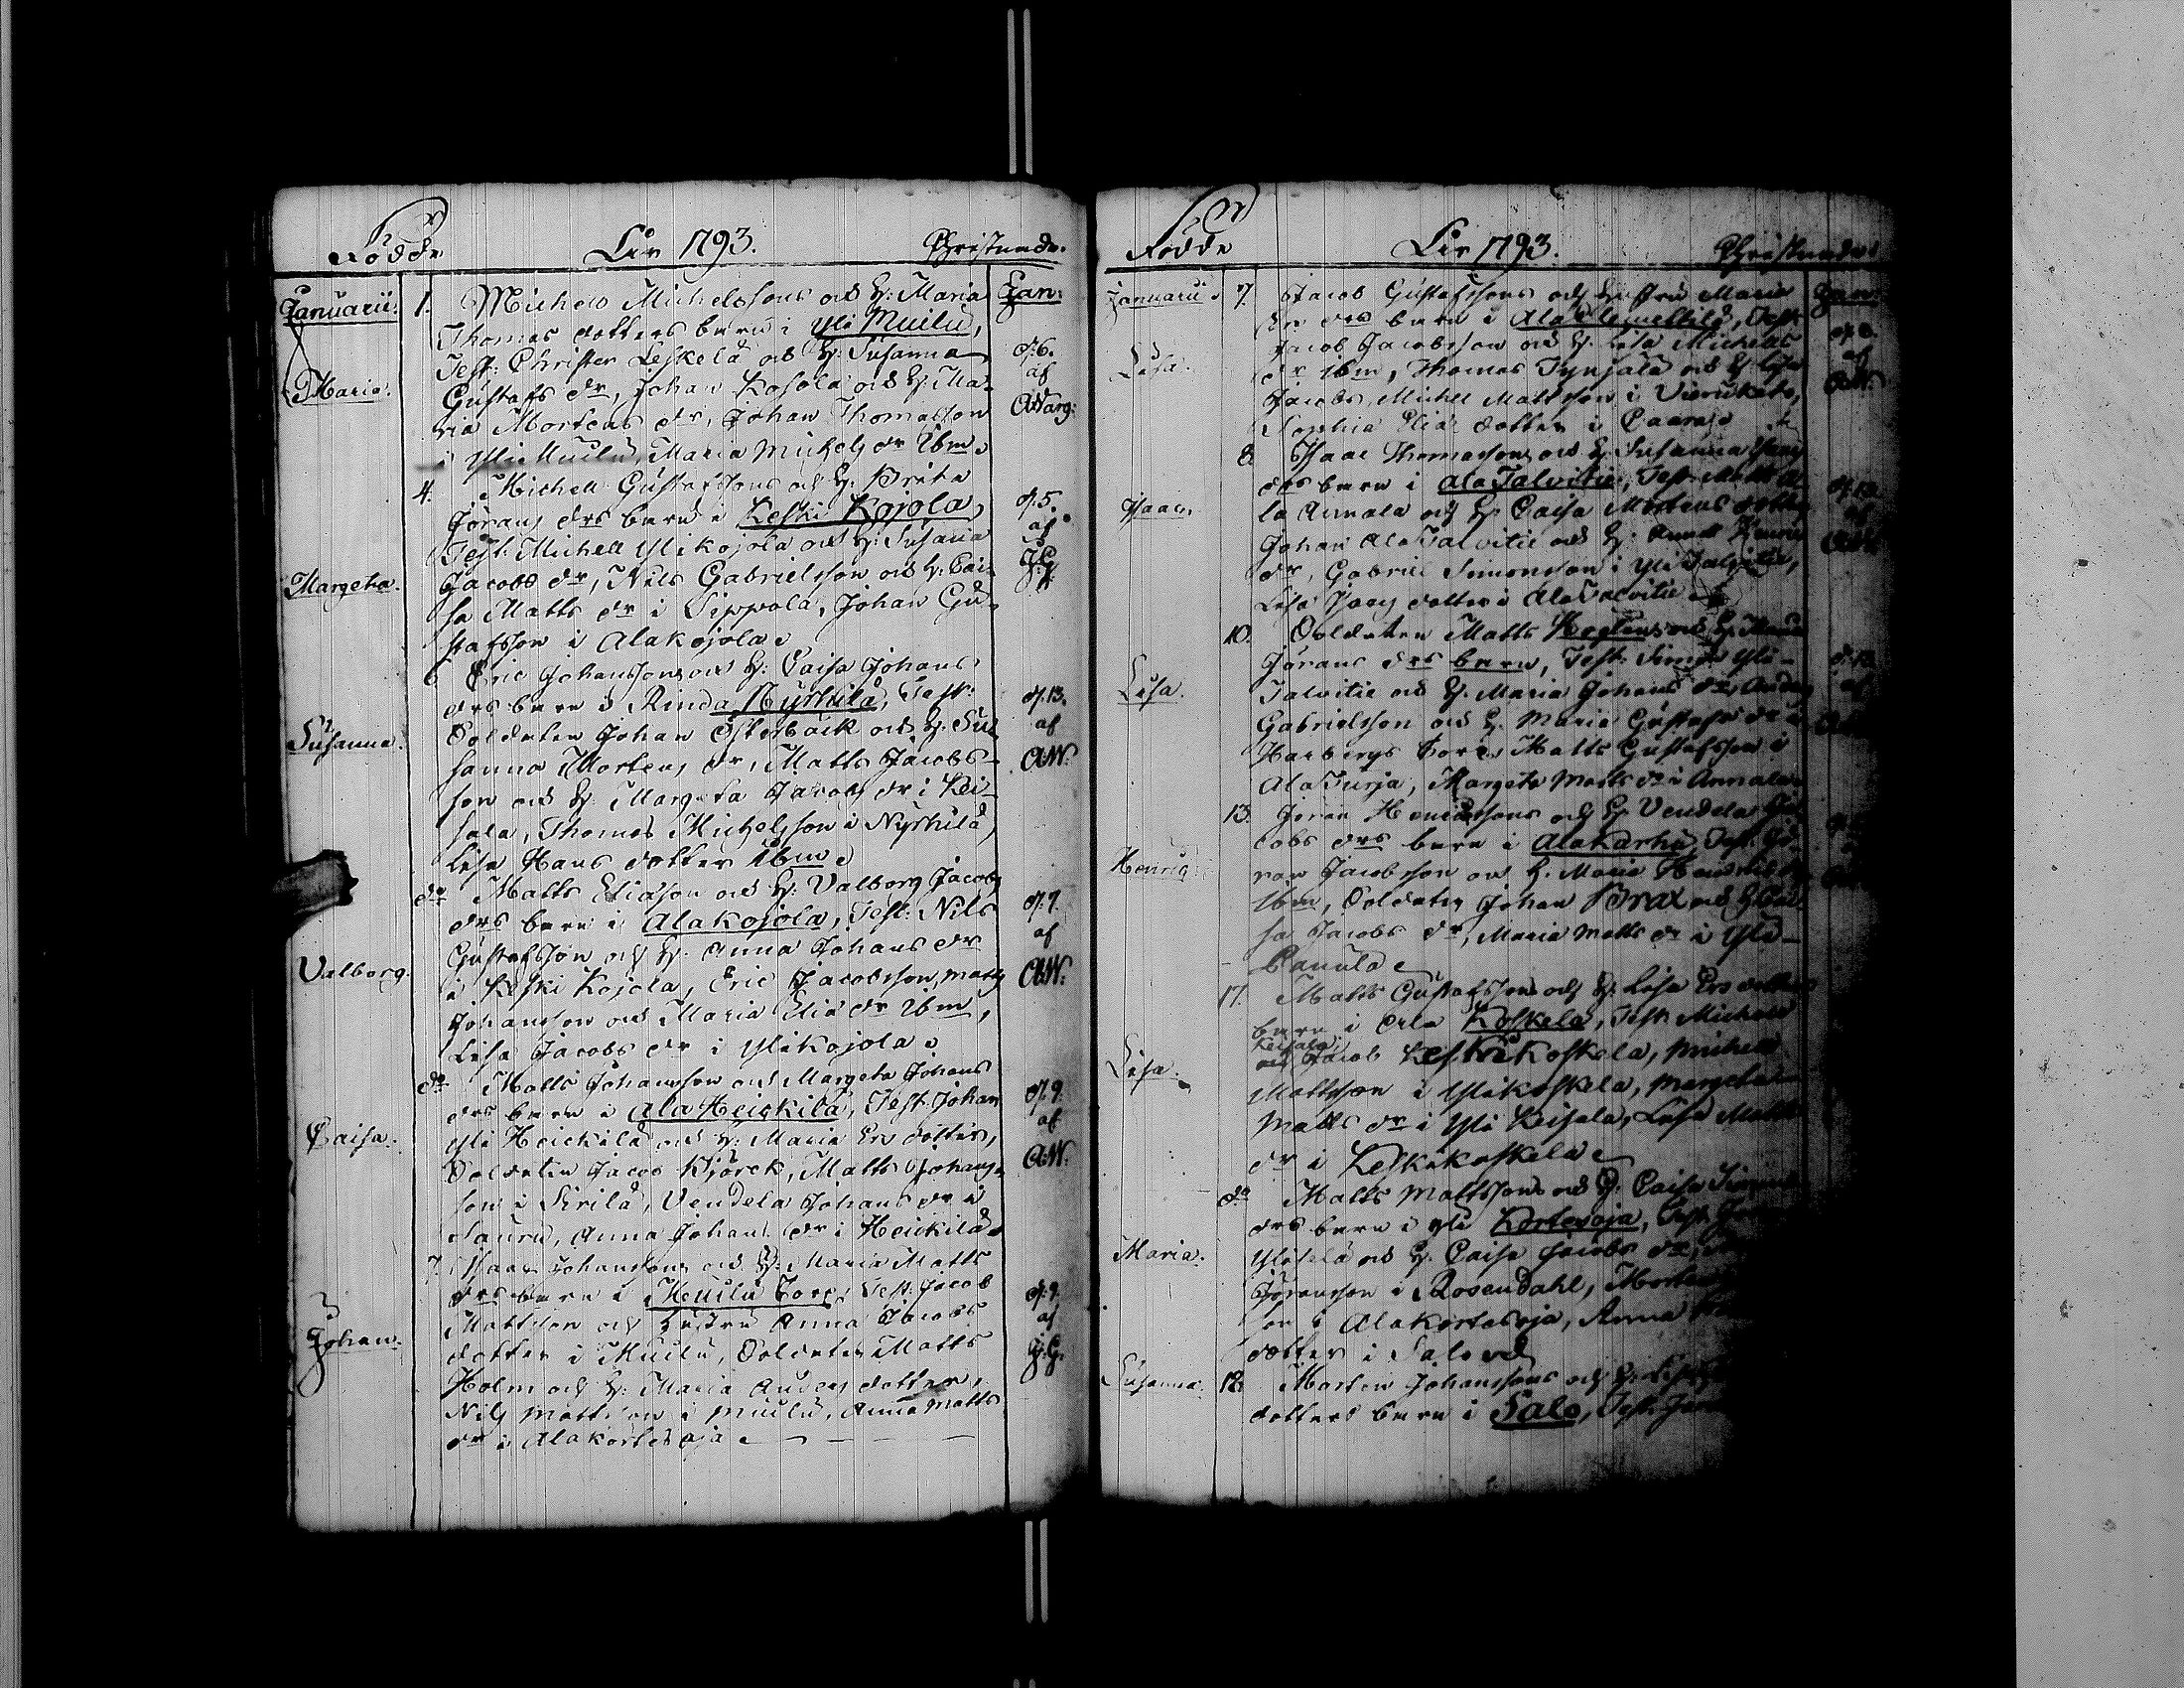 Födde
År 1793.
Christnade.
Januarii.
1. Michels Michelssons och H: Maria
Jan:
Thomas dotters barn i Yli Muilu,
Test: Christer Leskelä och H: Susanna
d. 6.
Gustafs dr, Johan Kojola och H: Ma-
af
Maria.
ria Mortens dr, Johan Thomasson
AWarg:
i Yli Muilu, Maria Michels dr ibm.
4. Michell Gustafssons och H: Brita
Jörans drs barn i Keski Kojola,
d. 5.
Test: Michell Ylikojola och H: Susana
af
Jacobs dr, Nils Gabrielsson och H: Cai-
J:G
Margeta.
sa Matts dr i Sippola, Johan Gu-
stafsson i Alakojola.
6 Eric Johanssons och H: Caisa Johans
drs barn i Rinda Nyrhilä, Test:
d. 13.
Soldaten Johan Österback och H: Su-
af
Susanna.
sanna Mortens dr, Matts Jacobs-
AW:
son och H: Margeta Jacobs dr i Kei-
sala, Thomas Michelsson i Nyrhilä,
Lisa Hans dotter ibm.
do Matts Eliæson och H: Valborg Jacobs
drs barn i Alakojola, Test: Nils
d. 7.
Gustafsson och H: Anna Johans dr
af
Valborg.
i Keski Kojola, Eric Jacobsson, Matts
AW:
Johansson och Maria Eliæ dr ibm,
Lisa Jacobs dr i Ylikojola.
do Matts Johansson och Margeta Johans
drs barn i Ala Heickilä, Test: Johan
d. 9.
Yli Heickilä och H: Maria Ers dotter,
af
Caisa.
Soldaten Jacob Kjörck, Matts Johans-
AW:
son i Sirilä, Vendela Johans dr i
Sauru, Anna Johans dr i Heickilä.
7. Isaac Johanssons och H: Maria Matts
drs barn i Muilu Torp, Test: Jacob
d. 9.
Mattsson och hustru Anna Jacobs
af
Johan.
dotter i Muilu, Soldaten Matts
J:G.
Holm och H: Maria Anders dotter,
Nils Mattsson i Muilu, Anna Matts
dr i Alakortesoja.
Födde
År 1793.
Christnade.
Januarii.
7. Jacob Gustafssons och hustru Maria
Jan:
drs barn i Ala, Test:
d. 8.
Lisa.
Jacob Jacobsson och H: Lisa Michells
af
dr ibm, Thomas Tynjälä och H: Lisa
AW:
Jacobs, Michel Mattsson i,
Sophia Eliæ dotter i
8. Isaac Thomassons och H: Susanna Isacs
drs barn i Ala Talvitie, Test: Matts A-
d. 13.
Isaac.
la Annala och H: Caisa Mortens dotter,
af
Johan Ala Talvitie och H: Anna Henrics
AW:
dr, Gabriel Simonsson i Yli Talvitie,
Lisa Isacs dotter i Ala Talvitie.
10. Soldaten Matts och H: Maria
Jörans drs barn, Test: Simon Yli-
d. 13.
Lisa.
Talvitie och H: Maria Johans dr, Anders
af
Gabrielsson och H: Maria Gustafs dr i
Harbergs torp, Matts Gustafsson i
Ala Turja, Margeta Matts dr i Annala.
13. Jöran Henricssons och H: Vendela Ja-
cobs drs barn i Ala Karhu, Test: Jö-
Henric
ran Jacobsson och H: Maria Hendrics dr
ibm, Soldaten Johan Brax och H: Cai-
sa Jacobs dr, Maria Matts dr i Yli-
Panula.
17. Matts Gustafssons och H: Lisa Ers dotters
barn i Orla Koskela, Test: Michell
Keisala
Lisa.
och Jacob Keskikoskela, Michell
Mattsson i Ylikoskela, Margeta
Matts dr i Yli Keisala, Lisa Matts
dr i Keskikoskela.
do Matts Mattssons och H: Caisa
drs barn i Yli Kortesoja, Test:
Maria.
Ylitalo och H: Caisa Jacobs dr,
Jöransson i Rosendahl, Morten
son i Alakortesoja, Anna
dotter i Salo
Susanna.
18. Morten Johanssons och H: Lisa
dotters barn i Salo, Test: